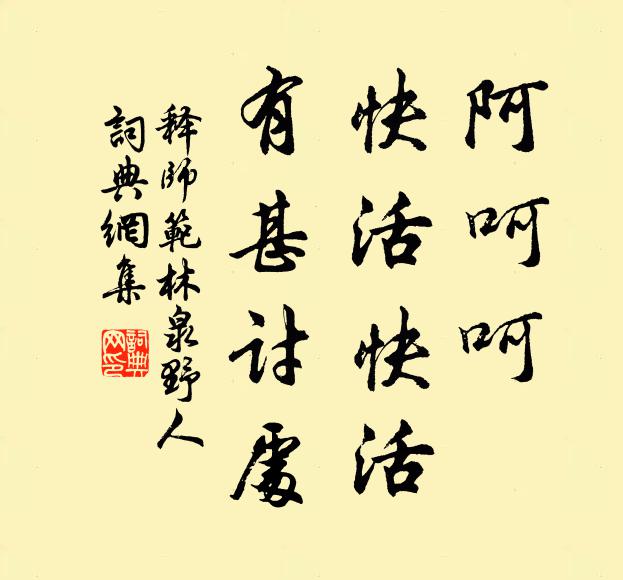 阿呵呵
快活快活
有甚討處
释師範林泉野人
詞典網集
詞典网印